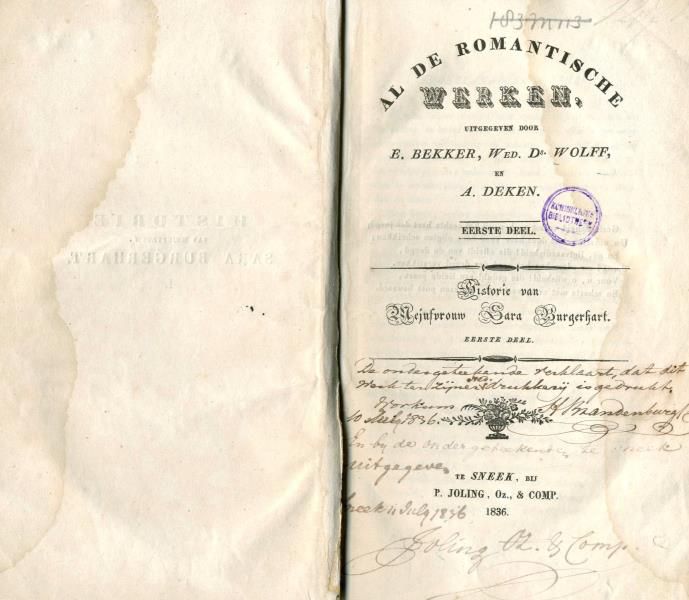 AL DE ROMANTISCHE
WERKEN,
UITGEGEVEN DOOR
E. BEKKER, WED. Ds. WOLFF,
EN
A. DEKEN.
KONINKLIJKE
BIBLIOTHEEK
EERSTE DEEL.
Historie van
Mejufvrouw Sara Burgerhart.
EERSTE DEEL.
De ondergeteekende verklaart, dat dit
werk ter zijner drukkerij is gedrukt.
Workum
H Brandenburgh
10 July 1836.
En bij de ondergeteekenden te Sneek
uitgegeven
TE SNEEK, BIJ
P. JOLING, Oz., & COMP.
1836.
Sneek 11 July 1836
Joling Oz. & Comp.
HISTORIE
SARA BURGERHART.
I.